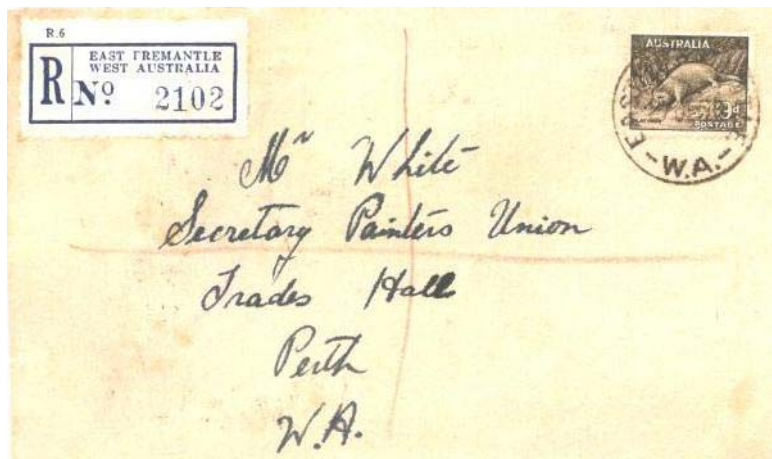 R.6
EAST FREMANTLE
WEST AUSTRALIA
R No 2102
AUSTRALIA
9d
POSTAGE
W.A.
Mr White
Secretary Painters Union
Trades Hall
Perth
W.A.